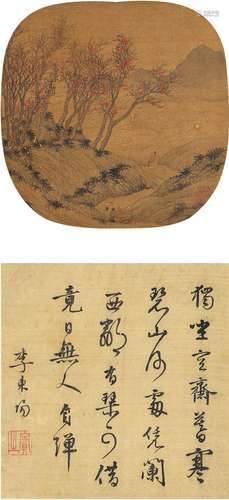 獨坐空齋暮寒
碧山何處凭闌
西鄰有琴可借
竟日無人自彈
李東陽